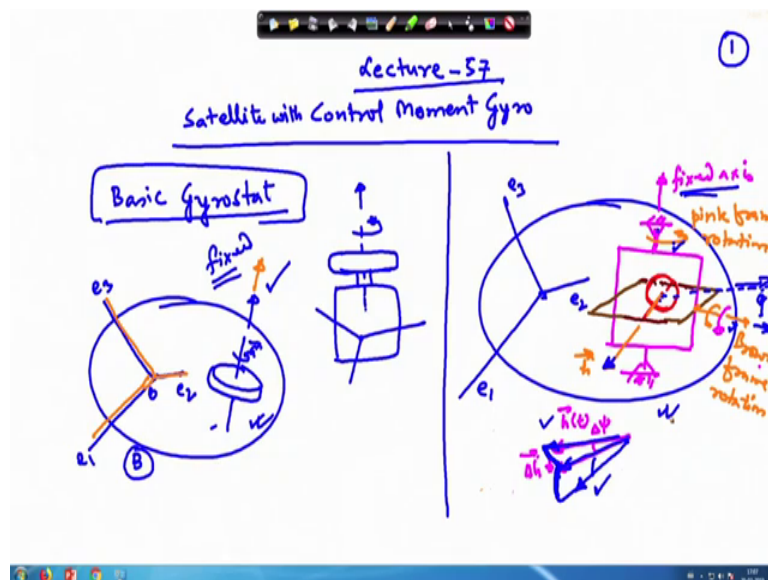 1
Lecture-57
Satellite with Control Moment Gyro
Basic Gyrostat
fixed
e3
e2
e1
B
e3
e2
e1
fixed axis
pink frame
rotation
frame
rotation
h
h(t)
Δψ
Δh
17:07